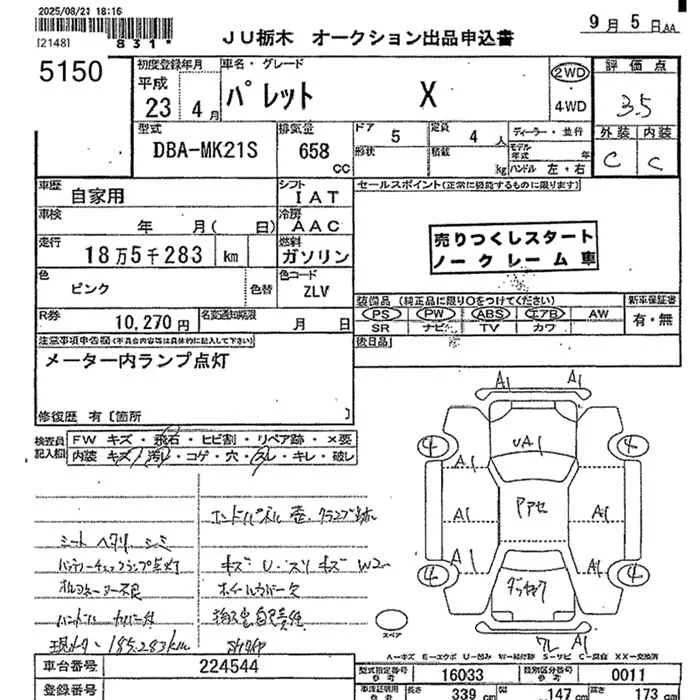 2025/08/21 18:16
[2148]
831*
JU栃木 オークション出品申込書
9月 5日 AA
5150
初度登録年月
平成
23 4月
車名・グレード
パレット X
2WD
4WD
評価点
3.5
外装 内装
C C
型式
DBA-MK21S
排気量
658 CC
ドア 5
形状
定員 4 人
積載 kg
ディーラー・並行
モデル年式 年
ハンドル 左・右
車歴 自家用
シフト IAT
車検 年 月( 日)
冷房 AAC
走行 18万5千283 km
燃料 ガソリン
色 ピンク 色替
色コード ZLV
R券 10,270円
名変通知期限 月 日
セールスポイント(正常に機能するものに限ります)
売りつくしスタート
ノークレーム車
装備品(純正品に限り○をつけてください)
新車保証書
PS PW ABS エアB AW
SR ナビ TV カワ
有・無
後日品
注意事項申告欄(不具合内容等は具体的に記入して下さい)
メーター内ランプ点灯
修復歴 有[箇所 ]
検査員記入欄
FW キズ・飛石・ヒビ割・リペア跡・×要
内装 キズ・汚レ・コゲ・穴・スレ・キレ・破レ
シート ヘタリ、シミ
ハンドル
現メーター 185,283km
キズ U・スリキズ W2
A1 A1
4 4
UA1
A1
A1 A1
A1
4 4
7L A1
スペア
A=キズ E=エクボ U=凹み W=補修跡 S=サビ C=腐食 XX=交換済
車台番号 224544
登録番号
型式指定番号 16033
類別区分番号 0011
長さ 339 cm
幅 147 cm
高さ 173 cm